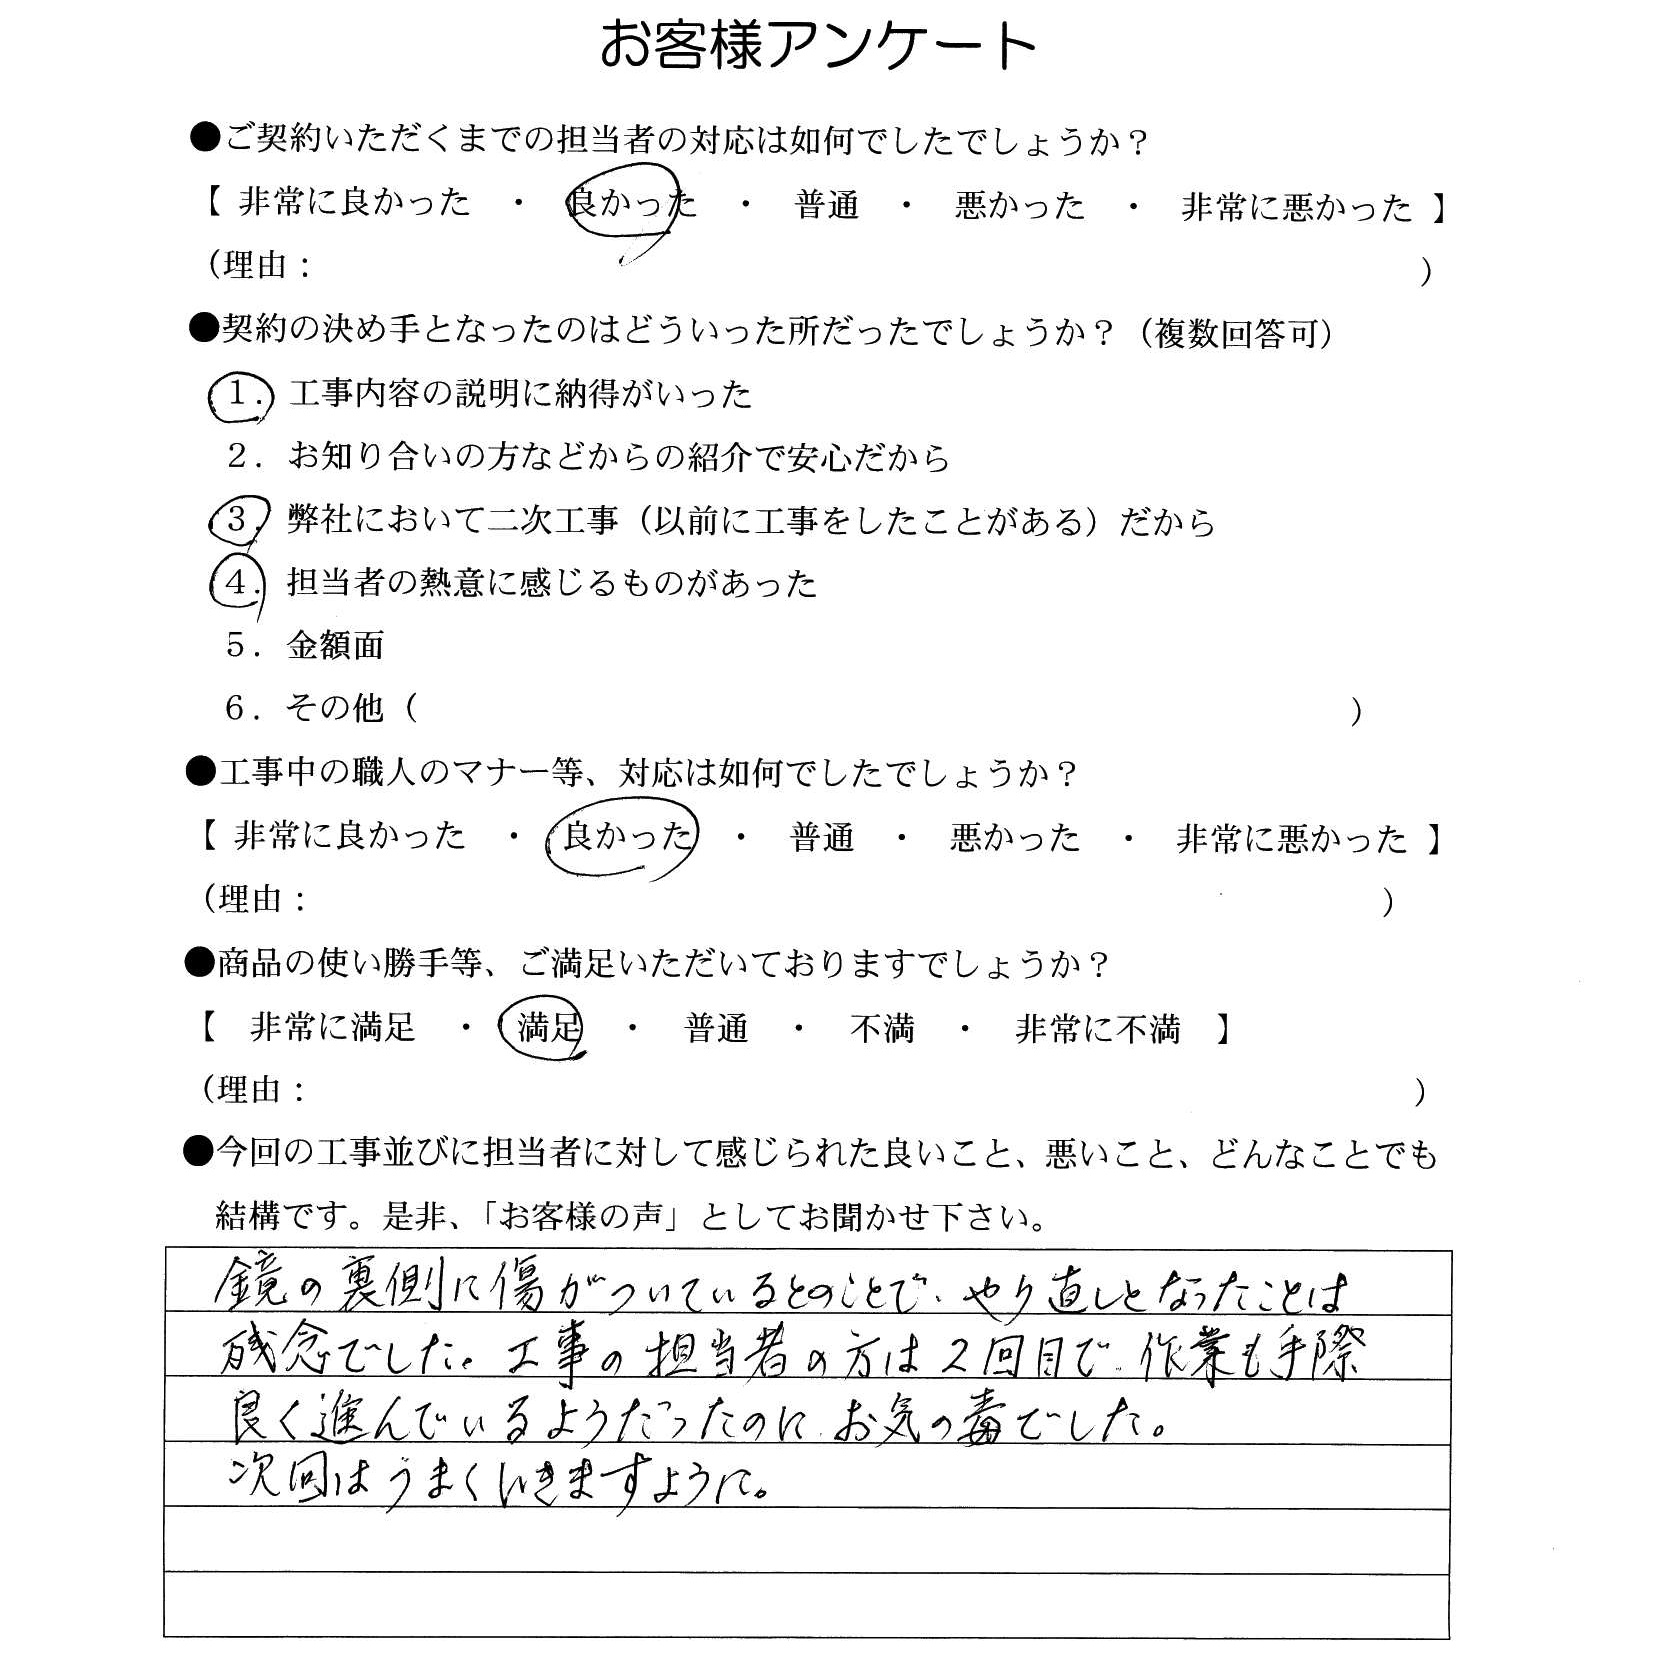 お客様アンケート
●ご契約いただくまでの担当者の対応は如何でしたでしょうか？
【 非常に良かった ・ 良かった ・ 普通 ・ 悪かった ・ 非常に悪かった 】
（理由： ）
●契約の決め手となったのはどういった所だったでしょうか？（複数回答可）
１．工事内容の説明に納得がいった
２．お知り合いの方などからの紹介で安心だから
３．弊社において二次工事（以前に工事をしたことがある）だから
４．担当者の熱意に感じるものがあった
５．金額面
６．その他（ ）
●工事中の職人のマナー等、対応は如何でしたでしょうか？
【 非常に良かった ・ 良かった ・ 普通 ・ 悪かった ・ 非常に悪かった 】
（理由： ）
●商品の使い勝手等、ご満足いただいておりますでしょうか？
【 非常に満足 ・ 満足 ・ 普通 ・ 不満 ・ 非常に不満 】
（理由： ）
●今回の工事並びに担当者に対して感じられた良いこと、悪いこと、どんなことでも
結構です。是非、「お客様の声」としてお聞かせ下さい。
鏡の裏側に傷がついているとのことで、やり直しとなったことは
残念でした。工事の担当者の方は２回目で、作業も手際
良く進んでいるようだったのに、お気の毒でした。
次回はうまくいきますように。